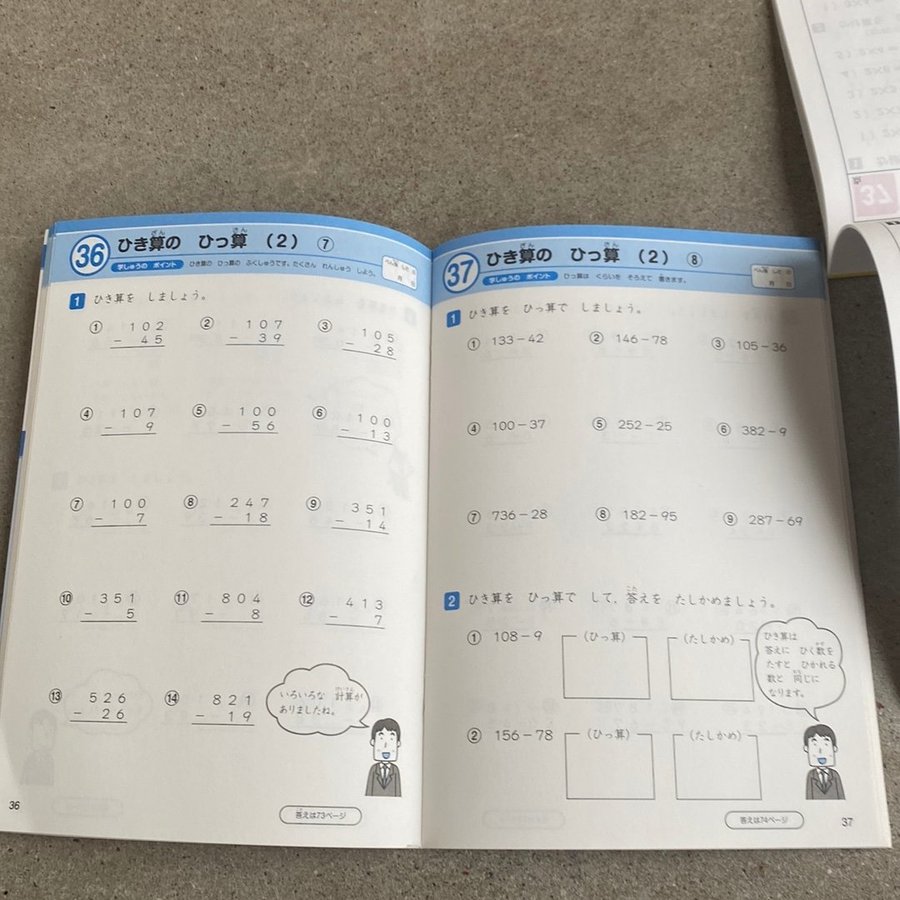 36 ひき算の ひっ算 (2) ⑦
学しゅうの ポイント ひき算の ひっ算の ふくしゅうです。たくさん れんしゅう しよう。
べん強 した 日
月 日
1 ひき算を しましょう。
① 102 − 45
② 107 − 39
③ 105 − 28
④ 107 − 9
⑤ 100 − 56
⑥ 100 − 13
⑦ 100 − 7
⑧ 247 − 18
⑨ 351 − 14
⑩ 351 − 5
⑪ 804 − 8
⑫ 413 − 7
⑬ 526 − 26
⑭ 821 − 19
いろいろな 計算が
ありましたね。
36
答えは73ページ
37 ひき算の ひっ算 (2) ⑧
学しゅうの ポイント ひっ算は くらいを そろえて 書きます。
べん強 した 日
月 日
1 ひき算を ひっ算で しましょう。
① 133−42 ② 146−78 ③ 105−36
④ 100−37 ⑤ 252−25 ⑥ 382−9
⑦ 736−28 ⑧ 182−95 ⑨ 287−69
2 ひき算を ひっ算で して、答えを たしかめましょう。
① 108−9 (ひっ算) (たしかめ)
② 156−78 (ひっ算) (たしかめ)
ひき算は
答えに ひく数を
たすと ひかれる
数と 同じに
なります。
答えは74ページ
37
37